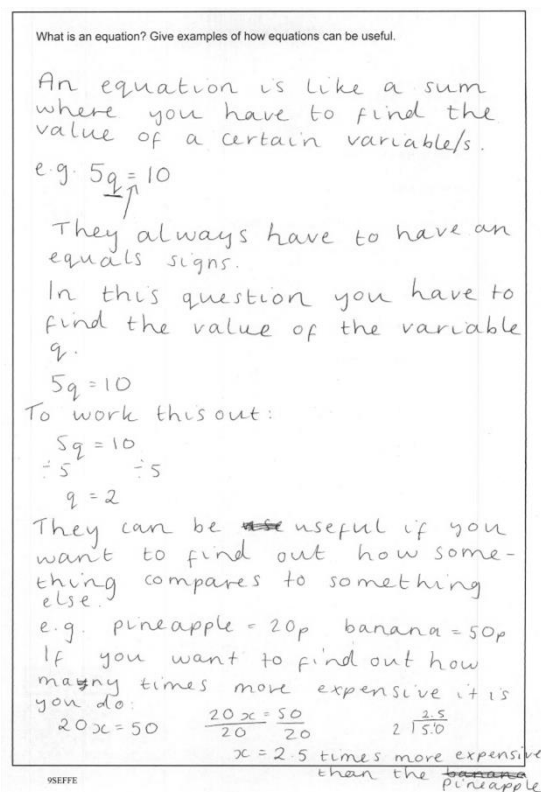 What is an equation? Give examples of how equations can be useful.
An equation is like a sum
where you have to find the
value of a certain variable/s.
e.g. 5q = 10
They always have to have an
equals signs.
In this question you have to
find the value of the variable
q.
5q = 10
To work this out:
5q = 10
÷5 ÷5
q = 2
They can be use useful if you
want to find out how some-
thing compares to something
else.
e.g. pineapple = 20p banana = 50p
If you want to find out how
many times more expensive it is
you do:
20x = 50 20x/20 = 50/20 2.5
2 5.0
x = 2.5 times more expensive
than the banana
pineapple
9SEFFE